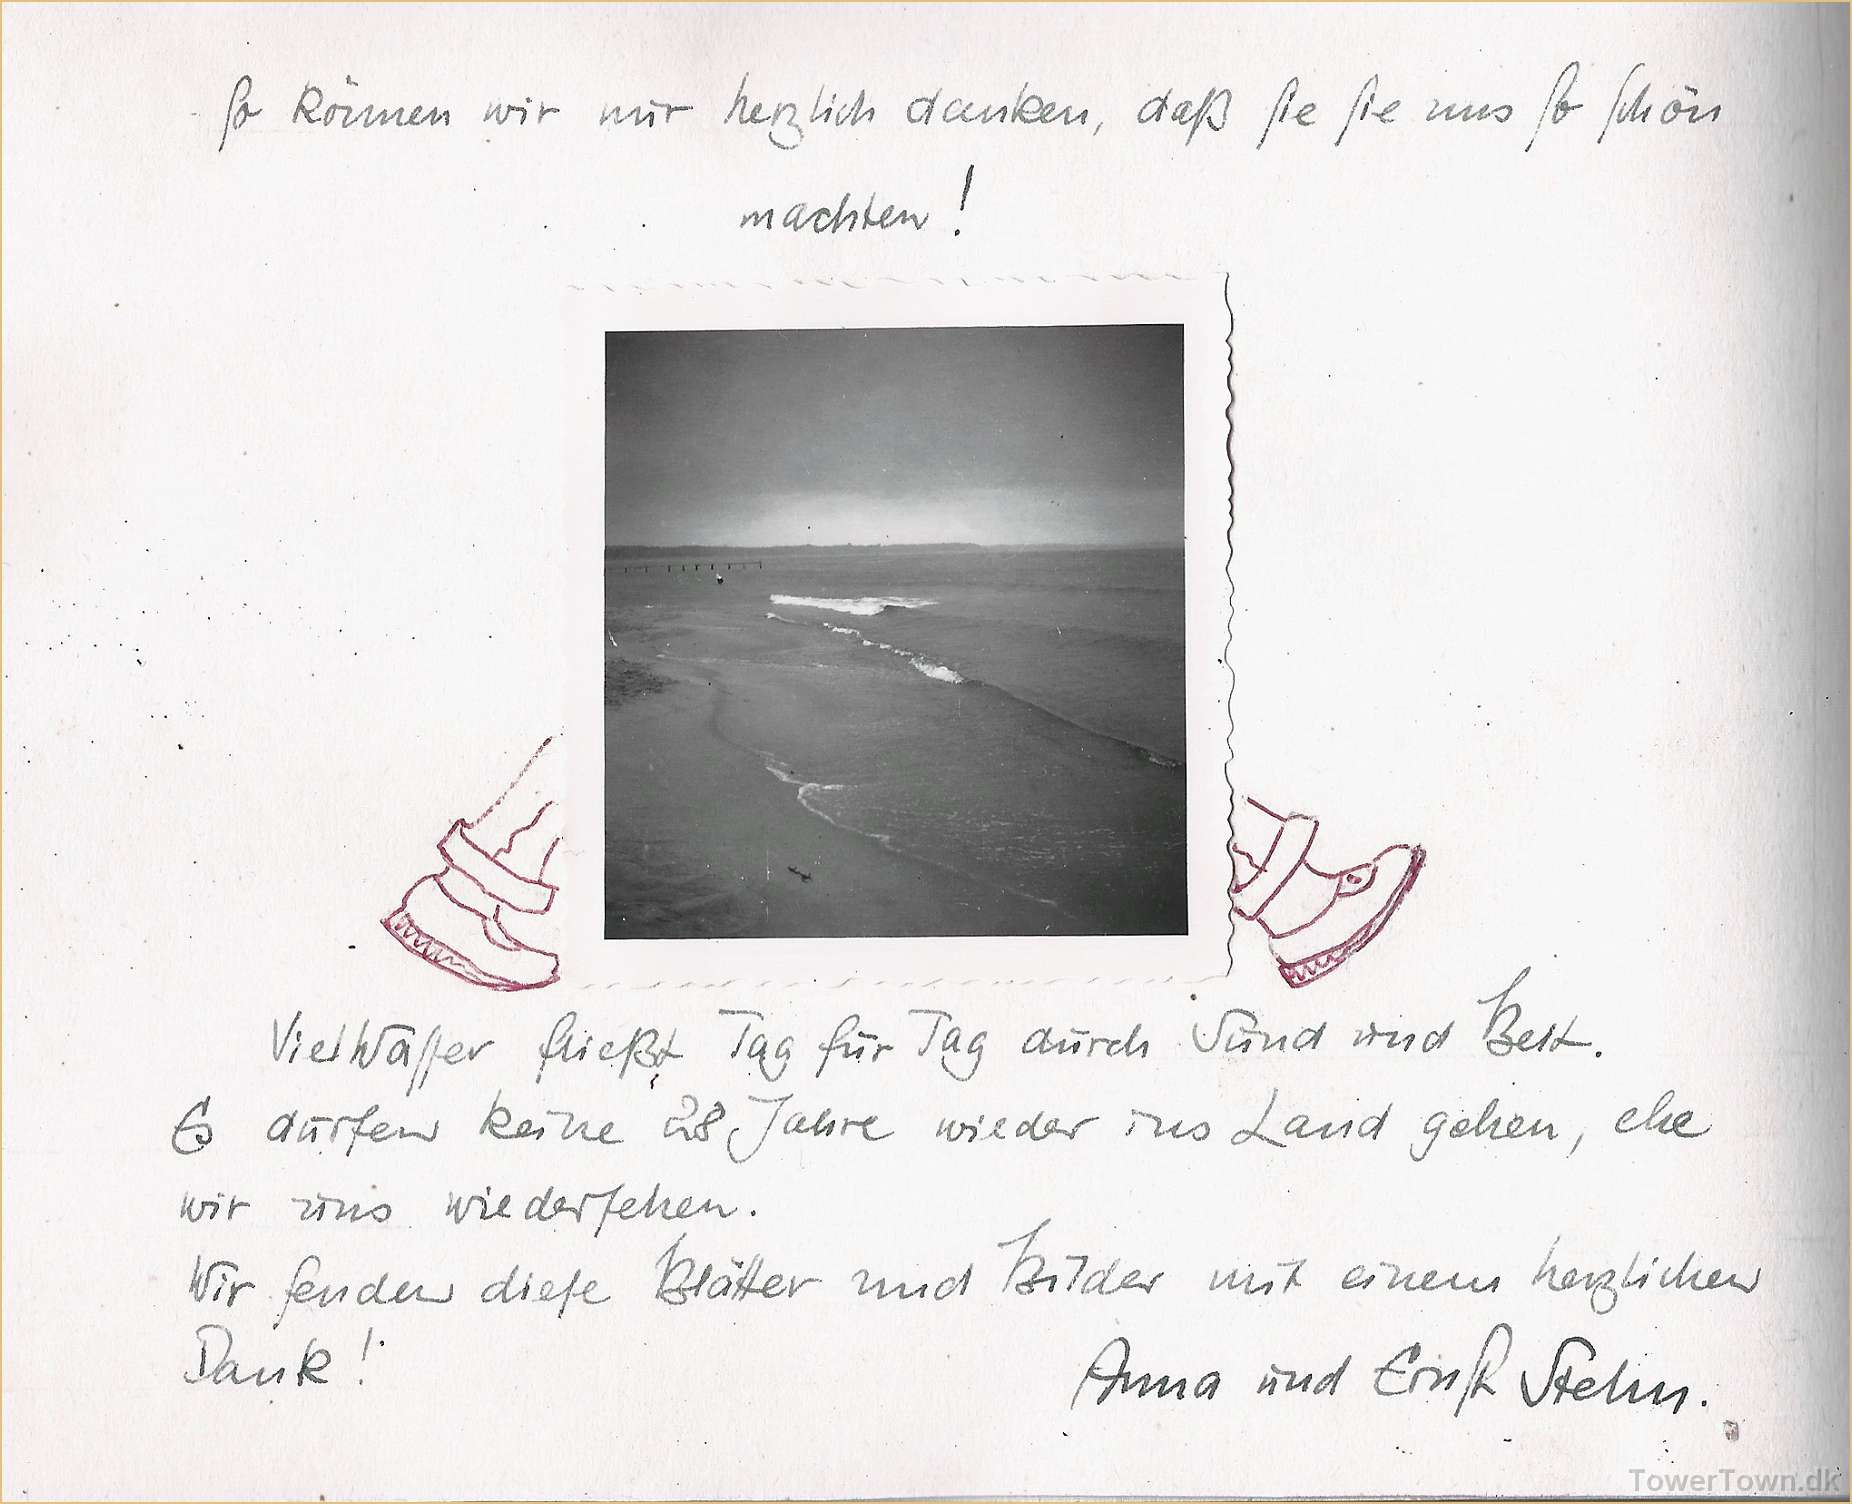 So können wir nur herzlich danken, daß sie sie uns so schön
machten!
Viel Wasser fließt Tag für Tag durch Sund und Belt.
Es dürfen keine 28 Jahre wieder ins Land gehen, ehe
wir uns wiedersehen.
Wir senden diese Blätter und Bilder mit einem herzlichen
Dank!
Anna und Ernst Stehn.
TowerTown.dk